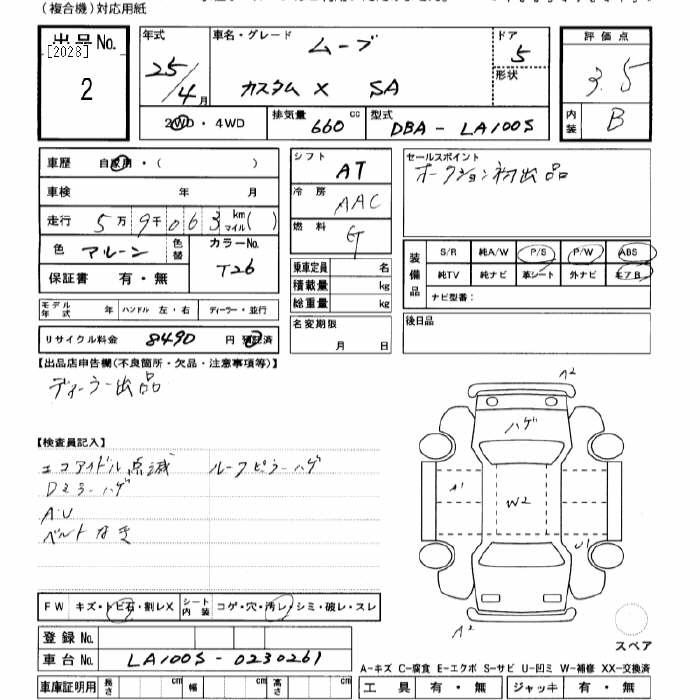 (複合機)対応用紙
出品No.
[2028]
2
年式
25/4月
車名・グレード
ムーブ
カスタム X SA
ドア
5
形状
評価点
3.5
内装
B
2WD・4WD
排気量 660 cc
型式 DBA-LA100S
車歴 自家用・( )
車検 年 月
走行 5万9千063 km マイル( )
色 マルーン
色替
カラーNo. T26
保証書 有・無
モデル年式 年 ハンドル 左・右 ディーラー・並行
リサイクル料金 8490 円 預託済
シフト AT
冷房 AAC
燃料 G
乗車定員 名
積載量 kg
総重量 kg
名変期限
月 日
セールスポイント
オークション初出品
装備品
S/R 純A/W P/S P/W ABS
純TV 純ナビ 革シート 外ナビ エアB
ナビ型番:
後日品
【出品店申告欄(不良箇所・欠品・注意事項等)】
ディーラー出品
【検査員記入】
エコアイドル点滅 ルーフピラーハゲ
Dミラーハゲ
A.U
ベルトなき
A2
ハゲ
A1
W2
U1
A2
スペア
FW キズ・トビ石・割レX シート内装 コゲ・穴・汚レ・シミ・破レ・スレ
登録No.
車台No. LA100S-0230261
A-キズ C-腐食 E-エクボ S-サビ U-凹ミ W-補修 XX-交換済
車庫証明用 長さ cm 幅 cm 高さ cm
工具 有・無 ジャッキ 有・無